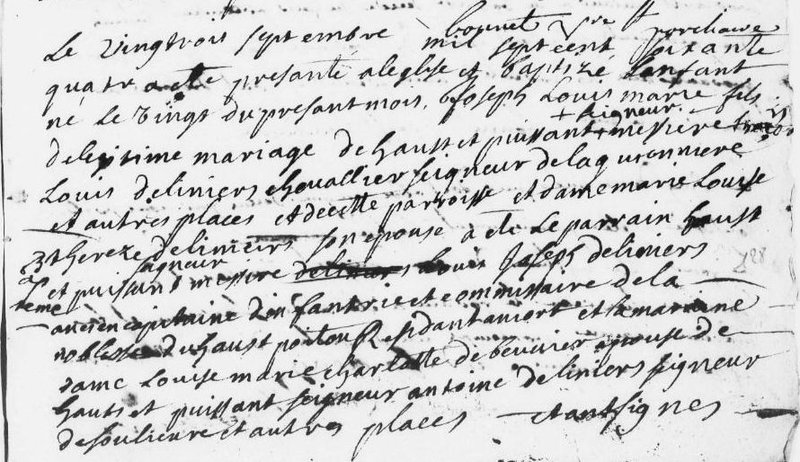 bonnet vre porchaire
Le vingtrois septembre mil sept cent soixante
quatre a ete presanté a leglise et baptizé Lenfant
né le vingt du presant mois, joseph Louis marie fils
+ seigneur
de legitime mariage de haust et puissant + messiere
Louis deliniers chevallier seigneur delaguronniere
et autres places et decette parroisse et dame marie Louise
thereze deliniers son epouse a ete Le parrain haust
seigneur
et puissant messire deliniers Louis Joseph deliniers
ancien capitaine dinfantrie et commisaire de la
noblesse du haust poitou Residant aniort et la maraine
dame Louise marie charlotte de beuvier epouse de
hauts et puissant seigneur antoine deliniers seigneur
desoulievre et autres places et ont signes